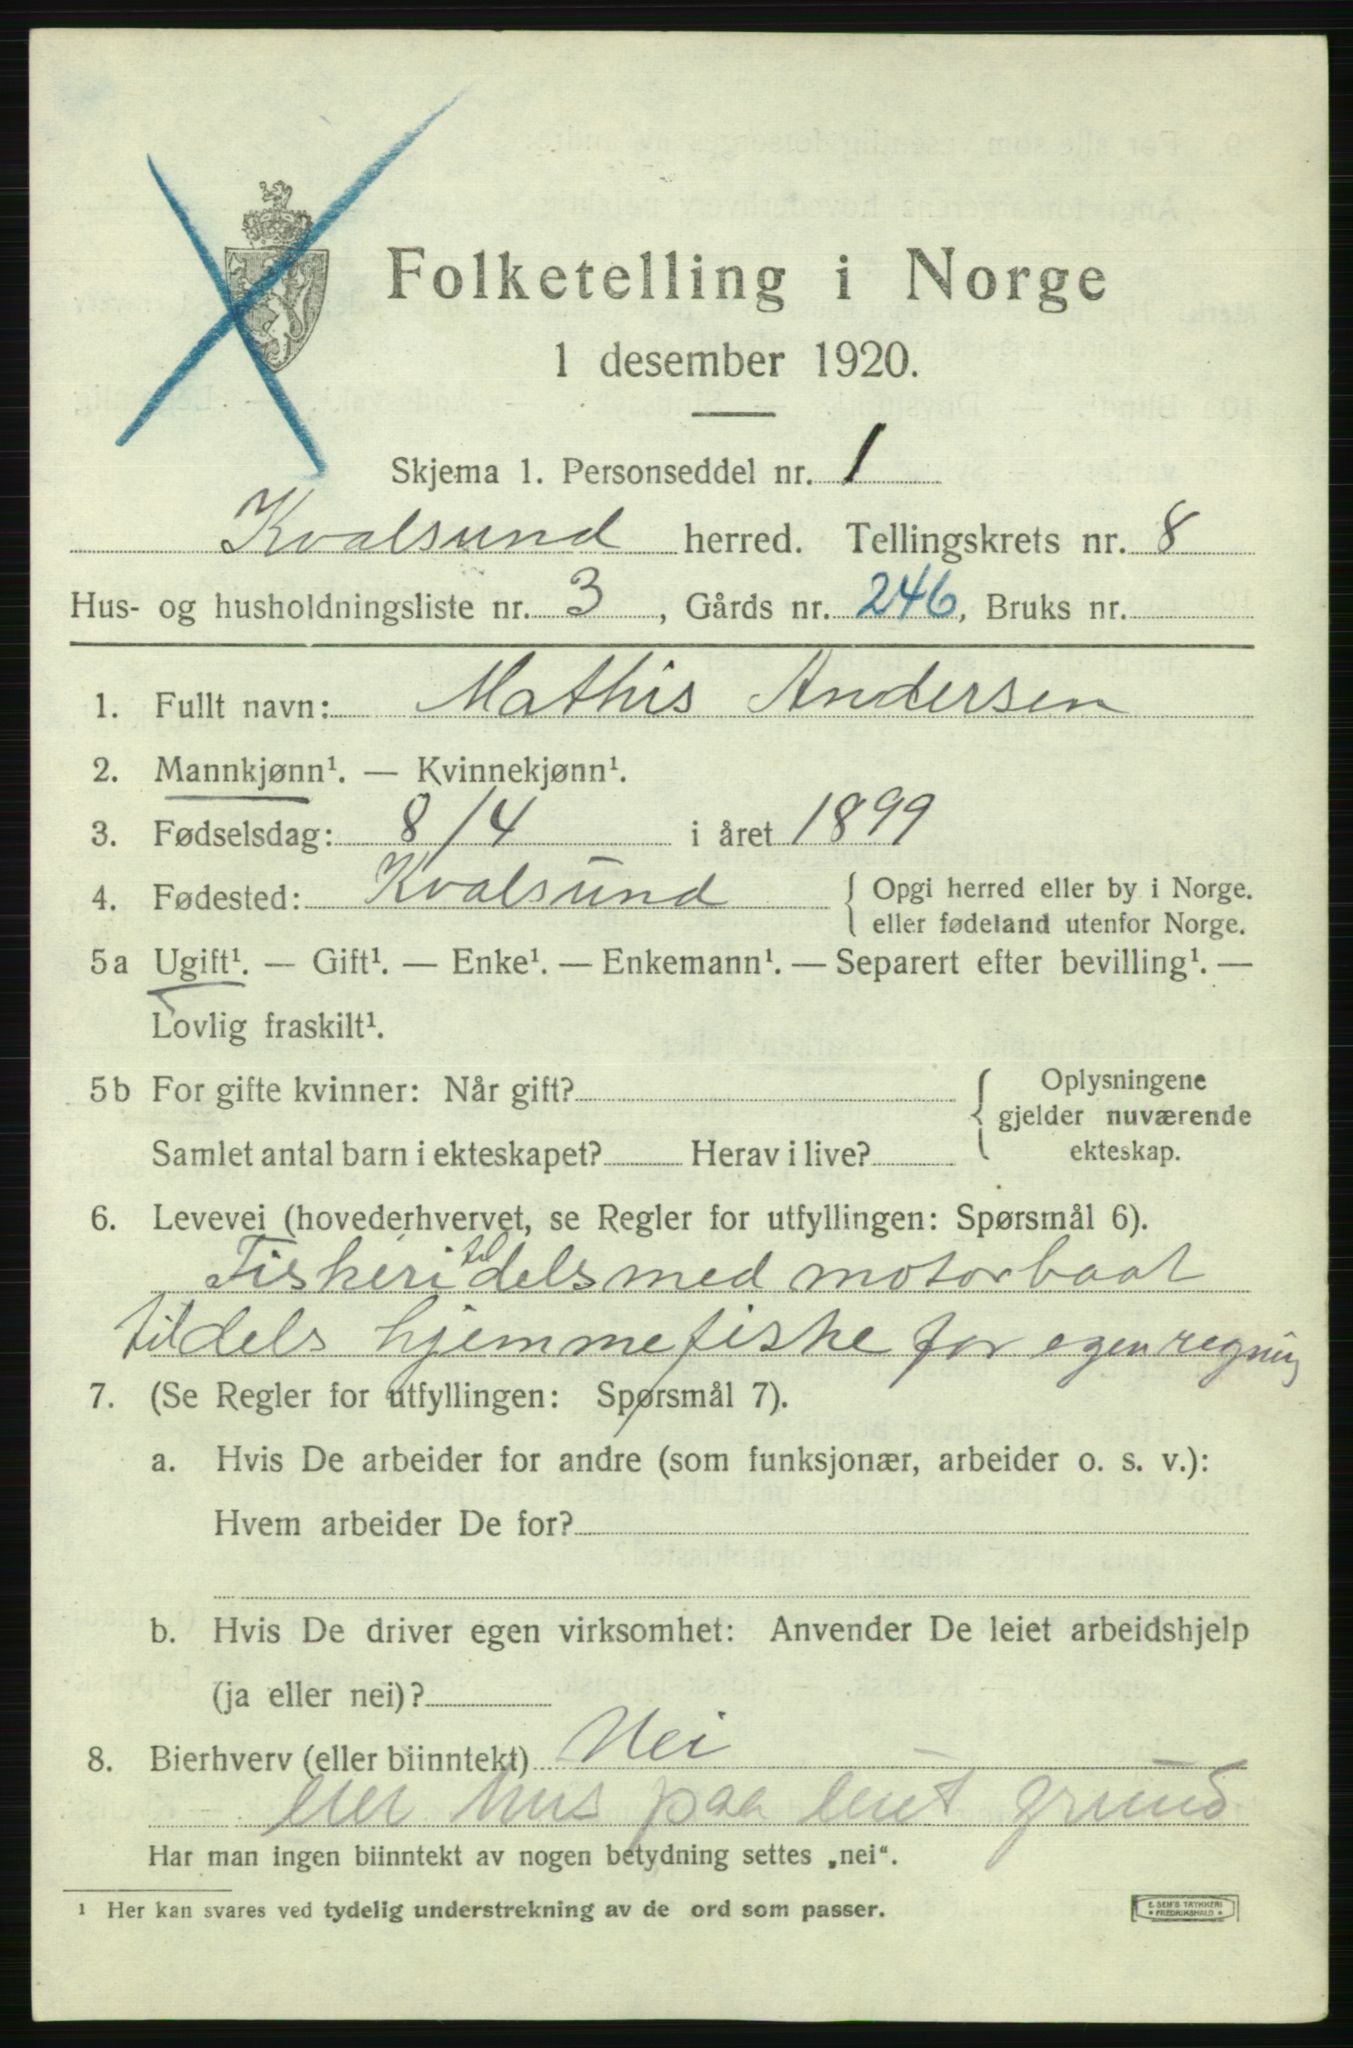 Folketelling i Norge
1 desember 1920.
Skjema 1. Personseddel nr. 1
Kvalsund herred. Tellingskrets nr. 8
Hus- og husholdningsliste nr. 3, Gårds nr. 246, Bruks nr.
1. Fullt navn: Mathis Andersen
2. Mannkjønn¹. — Kvinnekjønn¹.
3. Fødselsdag: 8/4 i året 1899
4. Fødested: Kvalsund { Opgi herred eller by i Norge.
eller fødeland utenfor Norge.
5a Ugift¹. — Gift¹. — Enke¹. — Enkemann¹. — Separert efter bevilling¹. —
Lovlig fraskilt¹.
5b For gifte kvinner: Når gift? { Oplysningene
gjelder nuværende
Samlet antal barn i ekteskapet? Herav i live? ekteskap.
6. Levevei (hovederhvervet, se Regler for utfyllingen: Spørsmål 6).
Fiskeri til dels med motorbaat
tildels hjemmefiske for egen regning
7. (Se Regler for utfyllingen: Spørsmål 7).
a. Hvis De arbeider for andre (som funksjonær, arbeider o. s. v.):
Hvem arbeider De for?
b. Hvis De driver egen virksomhet: Anvender De leiet arbeidshjelp
(ja eller nei)?
8. Bierhverv (eller biinntekt) Nei
eier hus paa leiet grund
Har man ingen biinntekt av nogen betydning settes „nei“.
¹ Her kan svares ved tydelig understrekning av de ord som passer.
E. SEM'S TRYKKERI
* FREDRIKSHALD *